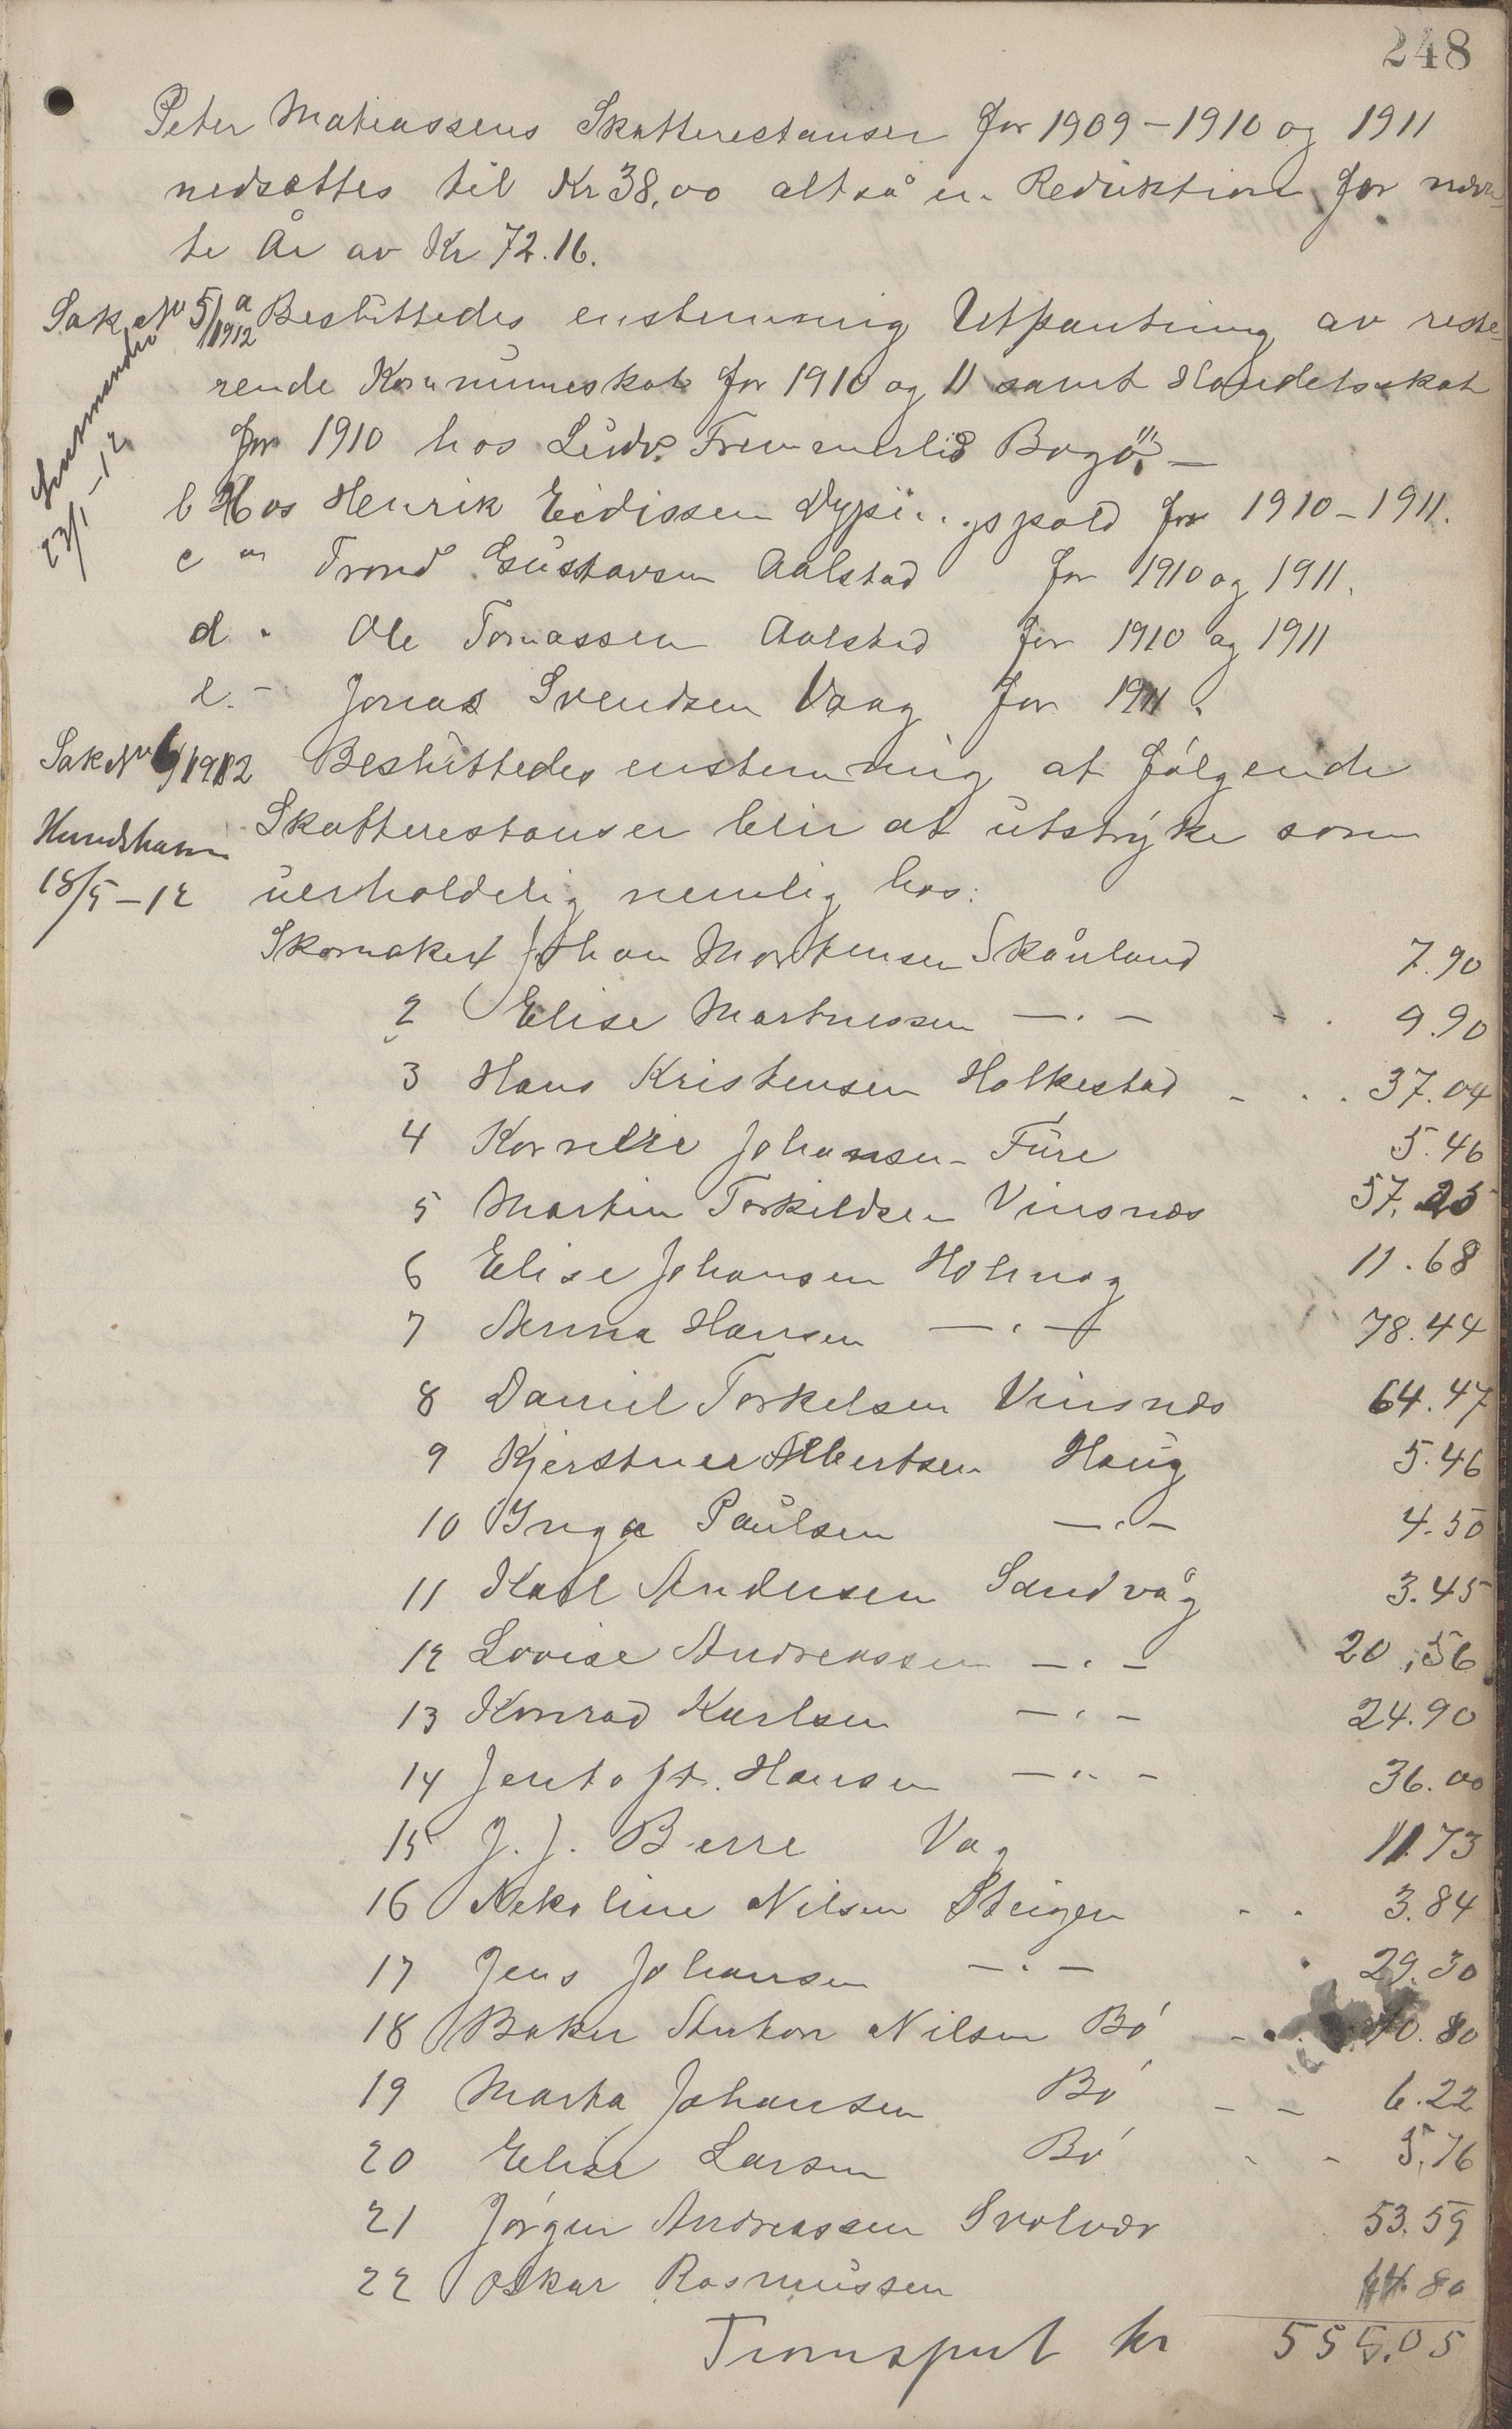 248
Peter Matiassens Skatterestanser for 1909-1910 og 1911
nedsættes til Kr 38,00 altså en Reduktion for nævn
te År av Kr 72.16.
Sak No 5/1912 a Besluttedes enstemmig Utpantning av reste-
rende Kommuneskat for 1910 og 11 samt Handelsskat
for 1910 hos Ludv. Fremmerlid Bogö. —
23/1 -12
b Hos Henrik Eidissen for 1910-1911.
c " Trond Gustavsen Aalstad for 1910 og 1911.
d " Ole Tomassen Aalstad for 1910 og 1911
e. - Jonas Svendsen Vaag for 1911.
Sak No 6/1912 Besluttedes enstemmig at følgende
Hundsham Skatterestanser blir at utstryke som
18/5-12 uerholdelig nemlig hos:
Skomaker 1 Johan Mortensen Skånland 7.90
2 Elise Martinessen —.— 9.90
3 Hans Kristensen Holkestad - . . 37.04
4 Kornelie Johansen Füre 5.46
5 Martin Torkildsen Vinsnæs 57.25
6 Elise Johansen Holmag 11.68
7 Anna Hansen —.— 78.44
8 Daniel Torkelsen Vinsnæs 64.47
9 Kjerstine Albertsen Haug 5.46
10 Inga Paulsen —.— 4.50
11 Karl Andersen Sandvåg 3.45
12 Lovise Andreassen —.— 20,56
13 Konrad Karlsen —.— 24.90
14 Jentoft Hansen —..— 36.00
15 J. J. Berre Vag 11.73
16 Nekoline Nilsen Steigen . . 3.84
17 Jens Johansen —.— . 29.30
18 Baker Anton Nilsen Bó - . . 70.80
19 Marta Johansen Bó - - 6.22
20 Elise Larsen Bó - - 5.76
21 Jórgen Andreassen Svolvær 53.59
22 Oskar Rasmussen 14.80
Transport kr 555.05